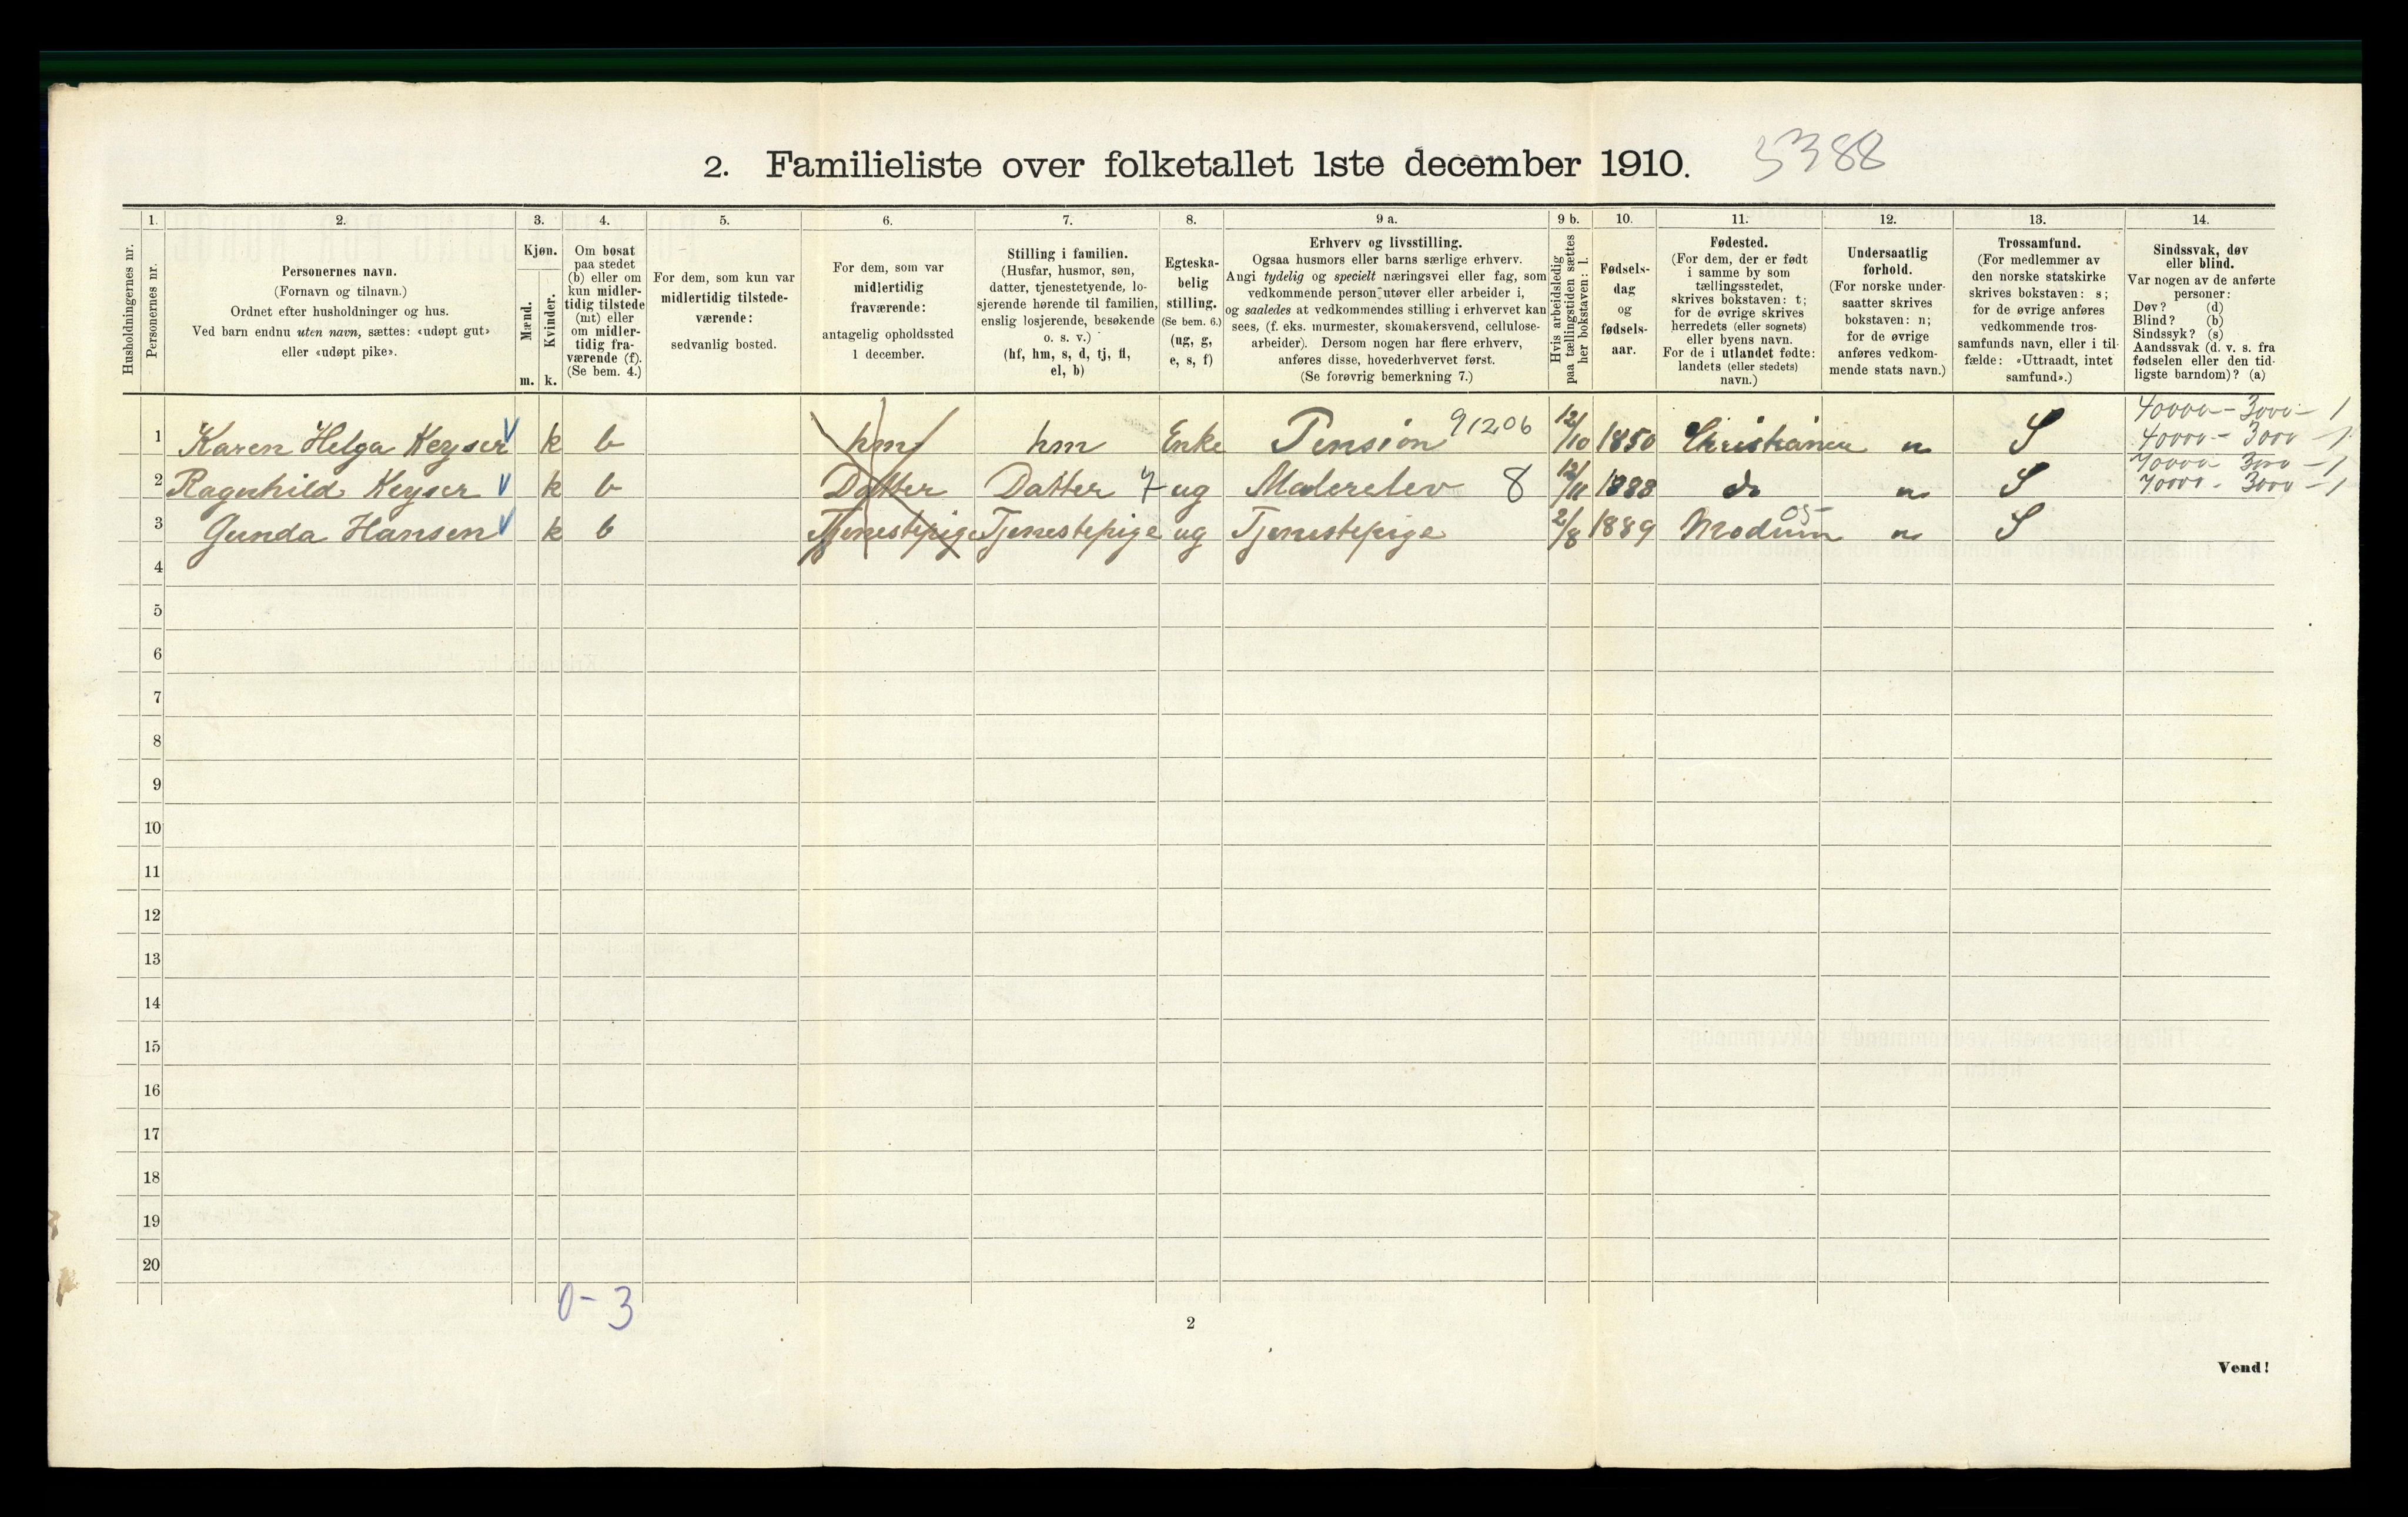 2. Familieliste over folketallet 1ste december 1910. 5388
Husholdningernes nr.
1. Personernes nr.
2. Personernes navn.
(Fornavn og tilnavn.)
Ordnet efter husholdninger og hus.
Ved barn endnu uten navn, sættes: «udøpt gut»
eller «udøpt pike».
3. Kjøn.
Mænd. m.
Kvinder. k.
4. Om bosat
paa stedet
(b) eller om
kun midler-
tidig tilstede
(mt) eller
om midler-
tidig fra-
værende (f).
(Se bem. 4.)
5. For dem, som kun var
midlertidig tilstede-
værende:
sedvanlig bosted.
6. For dem, som var
midlertidig
fraværende:
antagelig opholdssted
1 december.
7. Stilling i familien.
(Husfar, husmor, søn,
datter, tjenestetyende, lo-
sjerende hørende til familien,
enslig losjerende, besøkende
o. s. v.)
(hf, hm, s, d, tj, fl,
el, b)
8. Egteska-
belig
stilling.
(Se bem. 6.)
(ug, g,
e, s, f)
9 a. Erhverv og livsstilling.
Ogsaa husmors eller barns særlige erhverv.
Angi tydelig og specielt næringsvei eller fag, som
vedkommende person utøver eller arbeider i,
og saaledes at vedkommendes stilling i erhvervet kan
sees, (f. eks. murmester, skomakersvend, cellulose-
arbeider). Dersom nogen har flere erhverv,
anføres disse, hovederhvervet først.
(Se forøvrig bemerkning 7.)
9 b. Hvis arbeidsledig
paa tællingstiden sættes
her bokstaven: l.
10. Fødsels-
dag
og
fødsels-
aar.
11. Fødested.
(For dem, der er født
i samme by som
tællingsstedet,
skrives bokstaven: t;
for de øvrige skrives
herredets (eller sognets)
eller byens navn.
For de i utlandet fødte:
landets (eller stedets)
navn.)
12. Undersaatlig
forhold.
(For norske under-
saatter skrives
bokstaven: n;
for de øvrige
anføres vedkom-
mende stats navn.)
13. Trossamfund.
(For medlemmer av
den norske statskirke
skrives bokstaven: s;
for de øvrige anføres
vedkommende tros-
samfunds navn, eller i til-
fælde: «Uttraadt, intet
samfund».)
14. Sindssvak, døv
eller blind.
Var nogen av de anførte
personer:
Døv? (d)
Blind? (b)
Sindssyk? (s)
Aandssvak (d. v. s. fra
fødselen eller den tid-
ligste barndom)? (a)
40000 - 3000 - 1
1 Karen Helga Keyser V k b hm hm Enke Pension 91206 12/10 1850 Christiania n S 40000 - 3000 - 1
70000 3000 - 1
2 Ragnhild Keyser V k b Datter Datter 7 ug Malerelev 8 12/11 1888 do n S 70000 - 3000 - 1
3 Gunda Hansen V k b Tjenestepige Tjenestepige ug Tjenestepige 2/8 1889 Modum 05- n S
4
5
6
7
8
9
10
11
12
13
14
15
16
17
18
19
20
0-3
2
Vend!